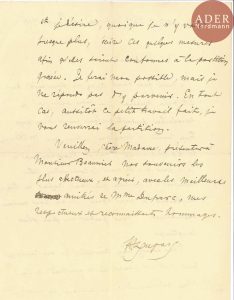 ADER
Nordmann
et le désire, quoique je n'y voie
presque plus, écrire ces quelques mesures
afin qu'elles soient conformes à la partition
gravée. Je ferai mon possible, mais je
ne réponds pas d'y parvenir. En tout
cas, aussitôt ce petit travail fait, je
vous renverrai la partition.
Veuillez, chère Madame, présenter à
Monsieur nos souvenirs les
plus affectueux, et agréer, avec les meilleures
amitiés de Mme Duparc, mes
respectueux et reconnaissants hommages.
H. Duparc